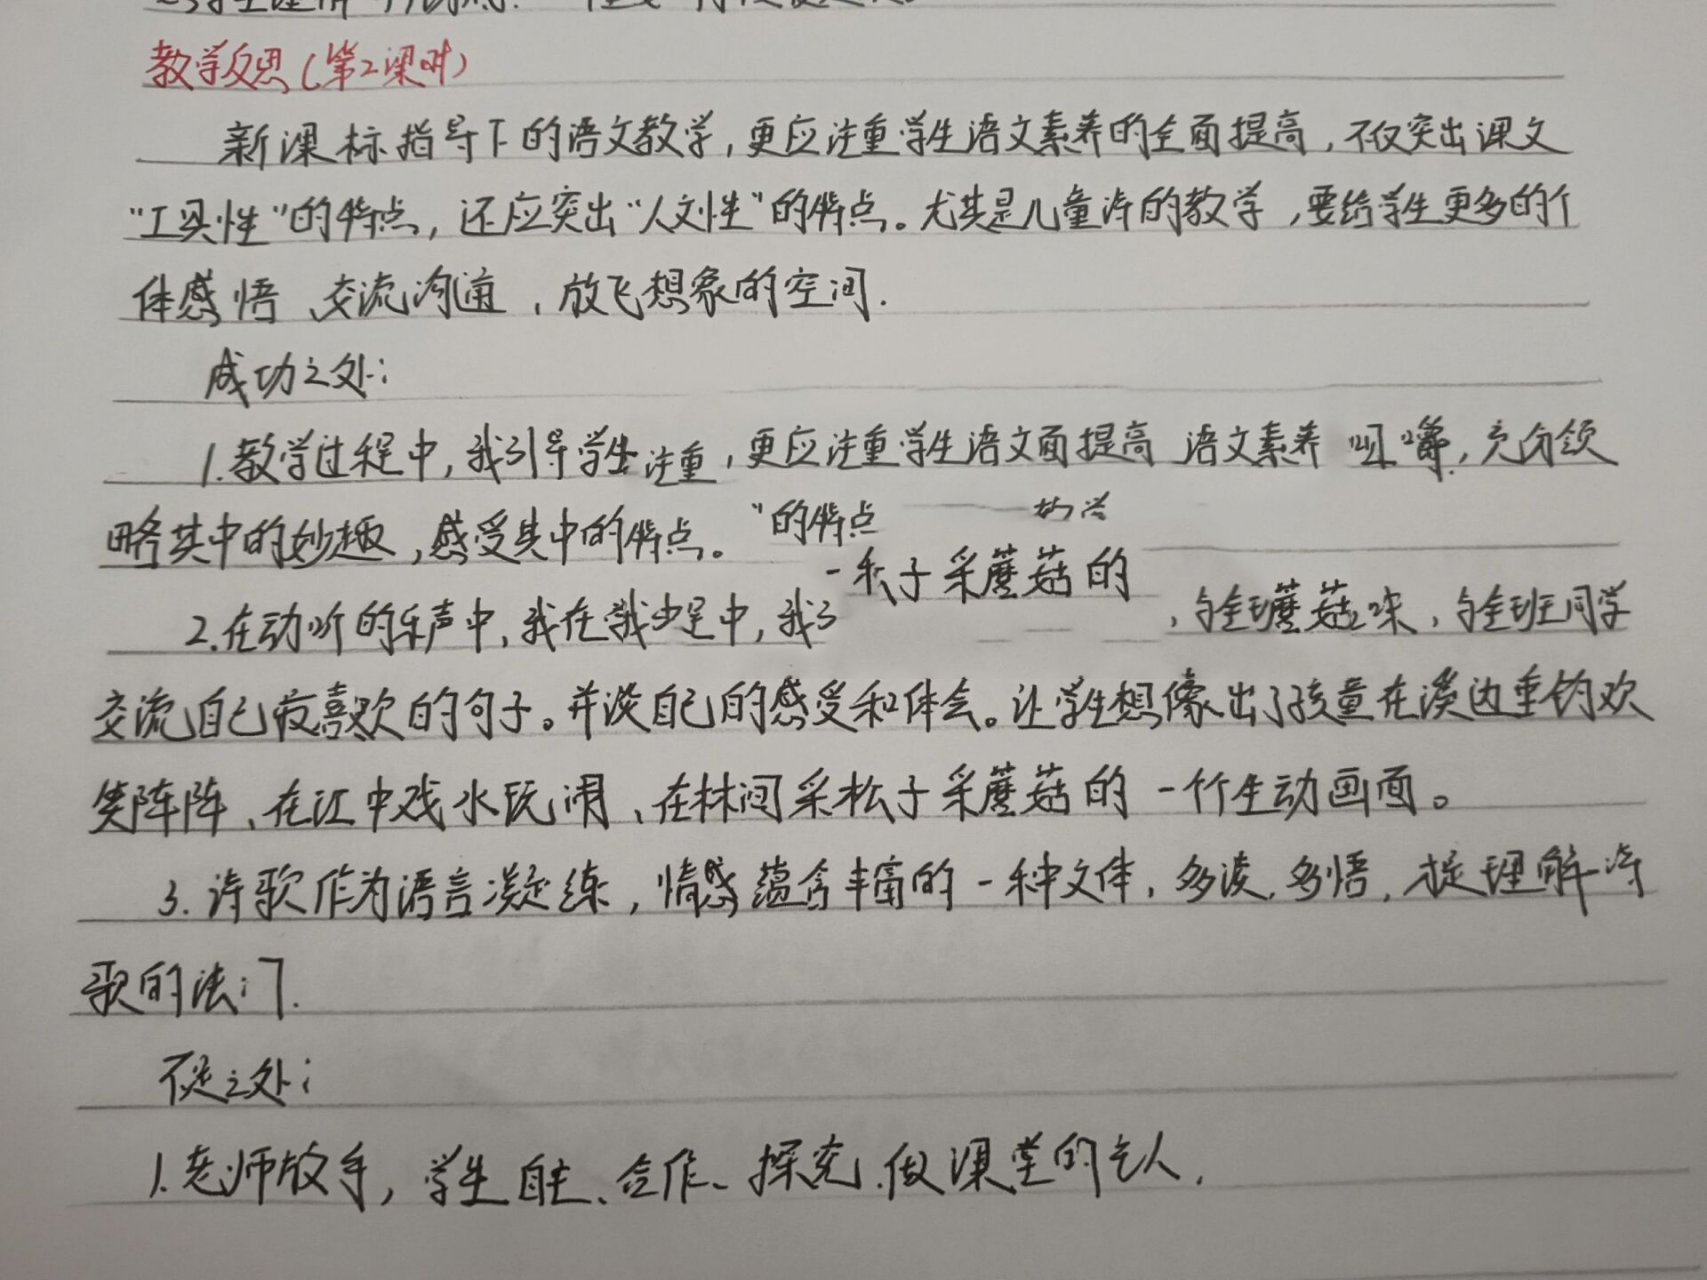 教学反思(第2课时)
新课标指导下的语文教学,更应注重学生语文素养的全面提高,不仅突出课文
“工具性”的特点,还应突出“人文性”的特点。尤其是儿童诗的教学,要给学生更多的个
体感悟、交流沟通,放飞想象的空间.
成功之处:
1.教学过程中,我引导学生注重,更应注重学生语文面提高 语文素养 咀嚼,充分领
略其中的妙趣,感受其中的特点。”的特点
松子采蘑菇的
2.在动听的乐声中,我在 中,我 ,与全班蘑菇味,与全班同学
交流自己最喜欢的句子。并谈自己的感受和体会。让学生想像出了孩童在溪边垂钓欢
笑阵阵、在江中戏水玩闹、在林间采松子采蘑菇的一个个生动画面。
3.诗歌作为语言凝练,情感蕴含丰富的一种文体,多读,多悟,是理解诗
歌的法门.
不足之处:
1.老师放手,学生自主、合作、探究.做课堂的主人.